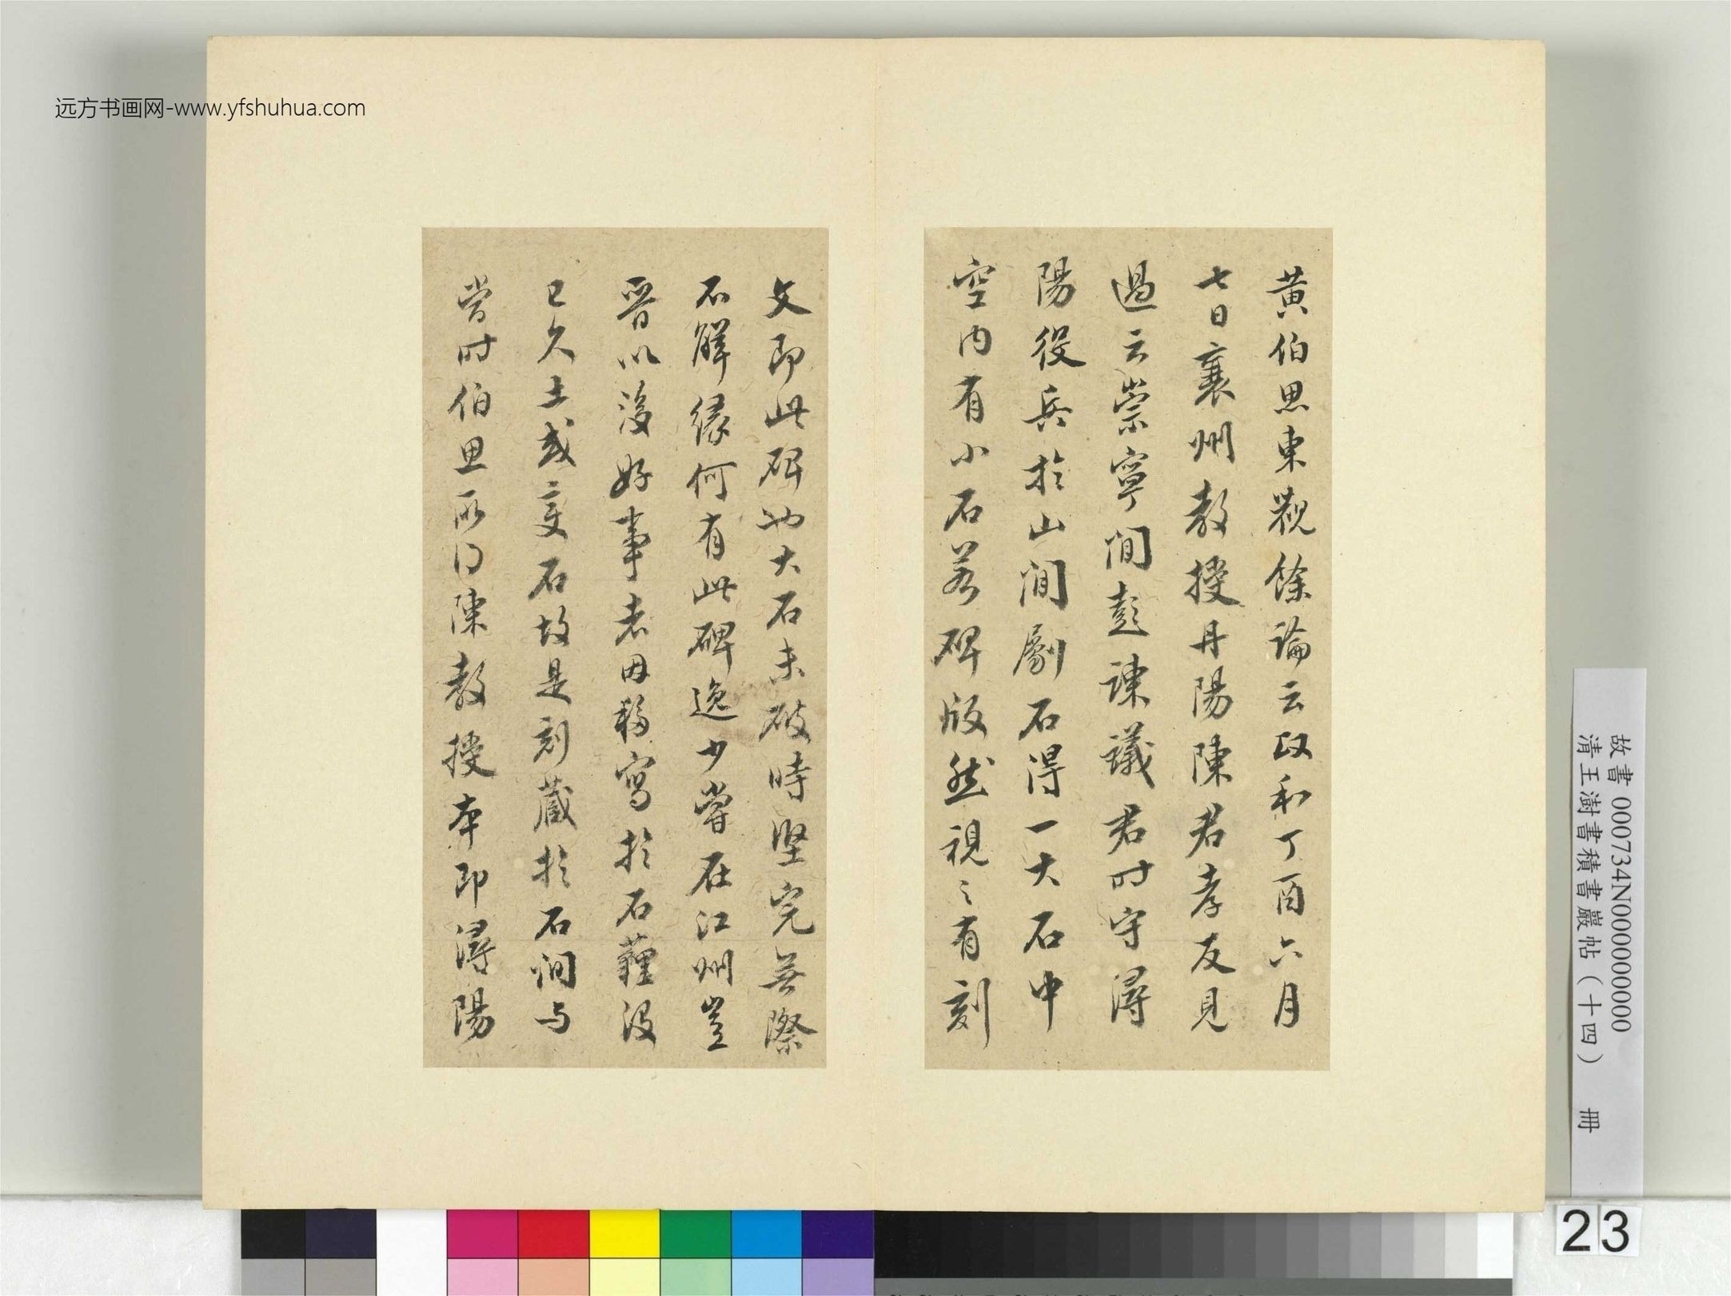 远方书画网-www.yfshuhua.com
黄伯思東觀餘論云政和丁酉六月
七日襄州教授丹陽陳君孝友見
過云崇寧間彭諫議君时守潯
陽役兵扵山間劚石得一大石中
空内有小石若碑版然視之有刻
文即此碑也大石未破時堅完無際
不解緣何有此碑逸少嘗在江州豈
晋以後好事者因移寫扵石薶没
已久土或变石故是刻蔵扵石間与
当时伯思所得陳教授本即潯陽
故書 000734N000000000
清王澍書積書巖帖（十四） 冊
23